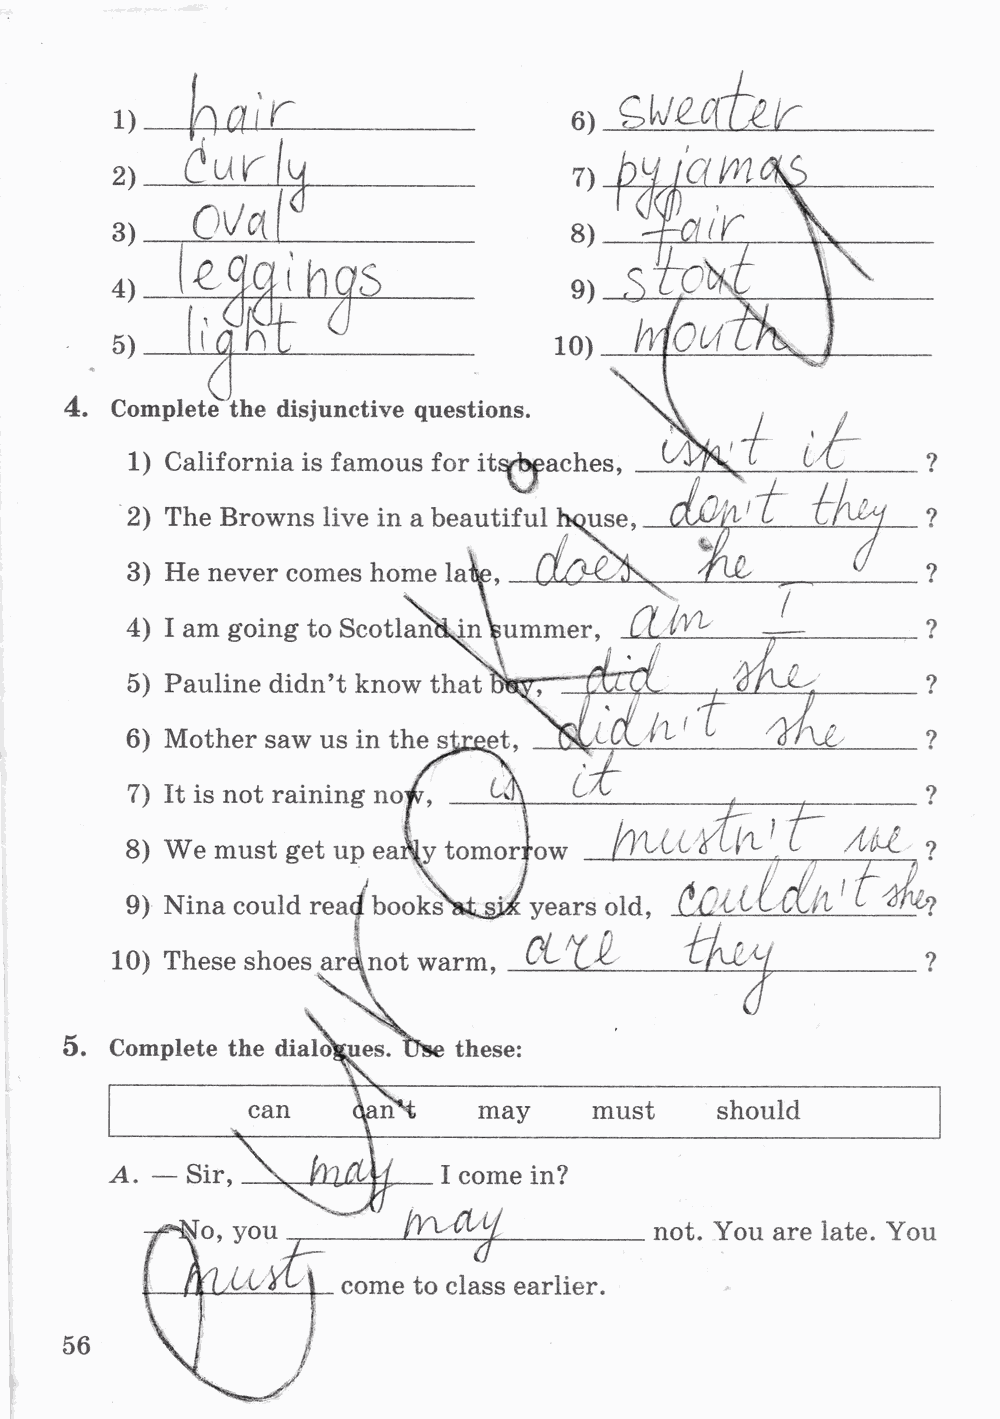 1) hair
2) curly
3) oval
4) leggings
5) light
6) sweater
7) pyjamas
8) fair
9) stout
10) mouth
4. Complete the disjunctive questions.
1) California is famous for its beaches, isn't it ?
2) The Browns live in a beautiful house, don't they ?
3) He never comes home late, does he ?
4) I am going to Scotland in summer, am I ?
5) Pauline didn't know that boy, did she ?
6) Mother saw us in the street, didn't she ?
7) It is not raining now, is it ?
8) We must get up early tomorrow mustn't we ?
9) Nina could read books at six years old, couldn't she?
10) These shoes are not warm, are they ?
5. Complete the dialogues. Use these:
can can't may must should
A. — Sir, may I come in?
— No, you may not. You are late. You
must come to class earlier.
56